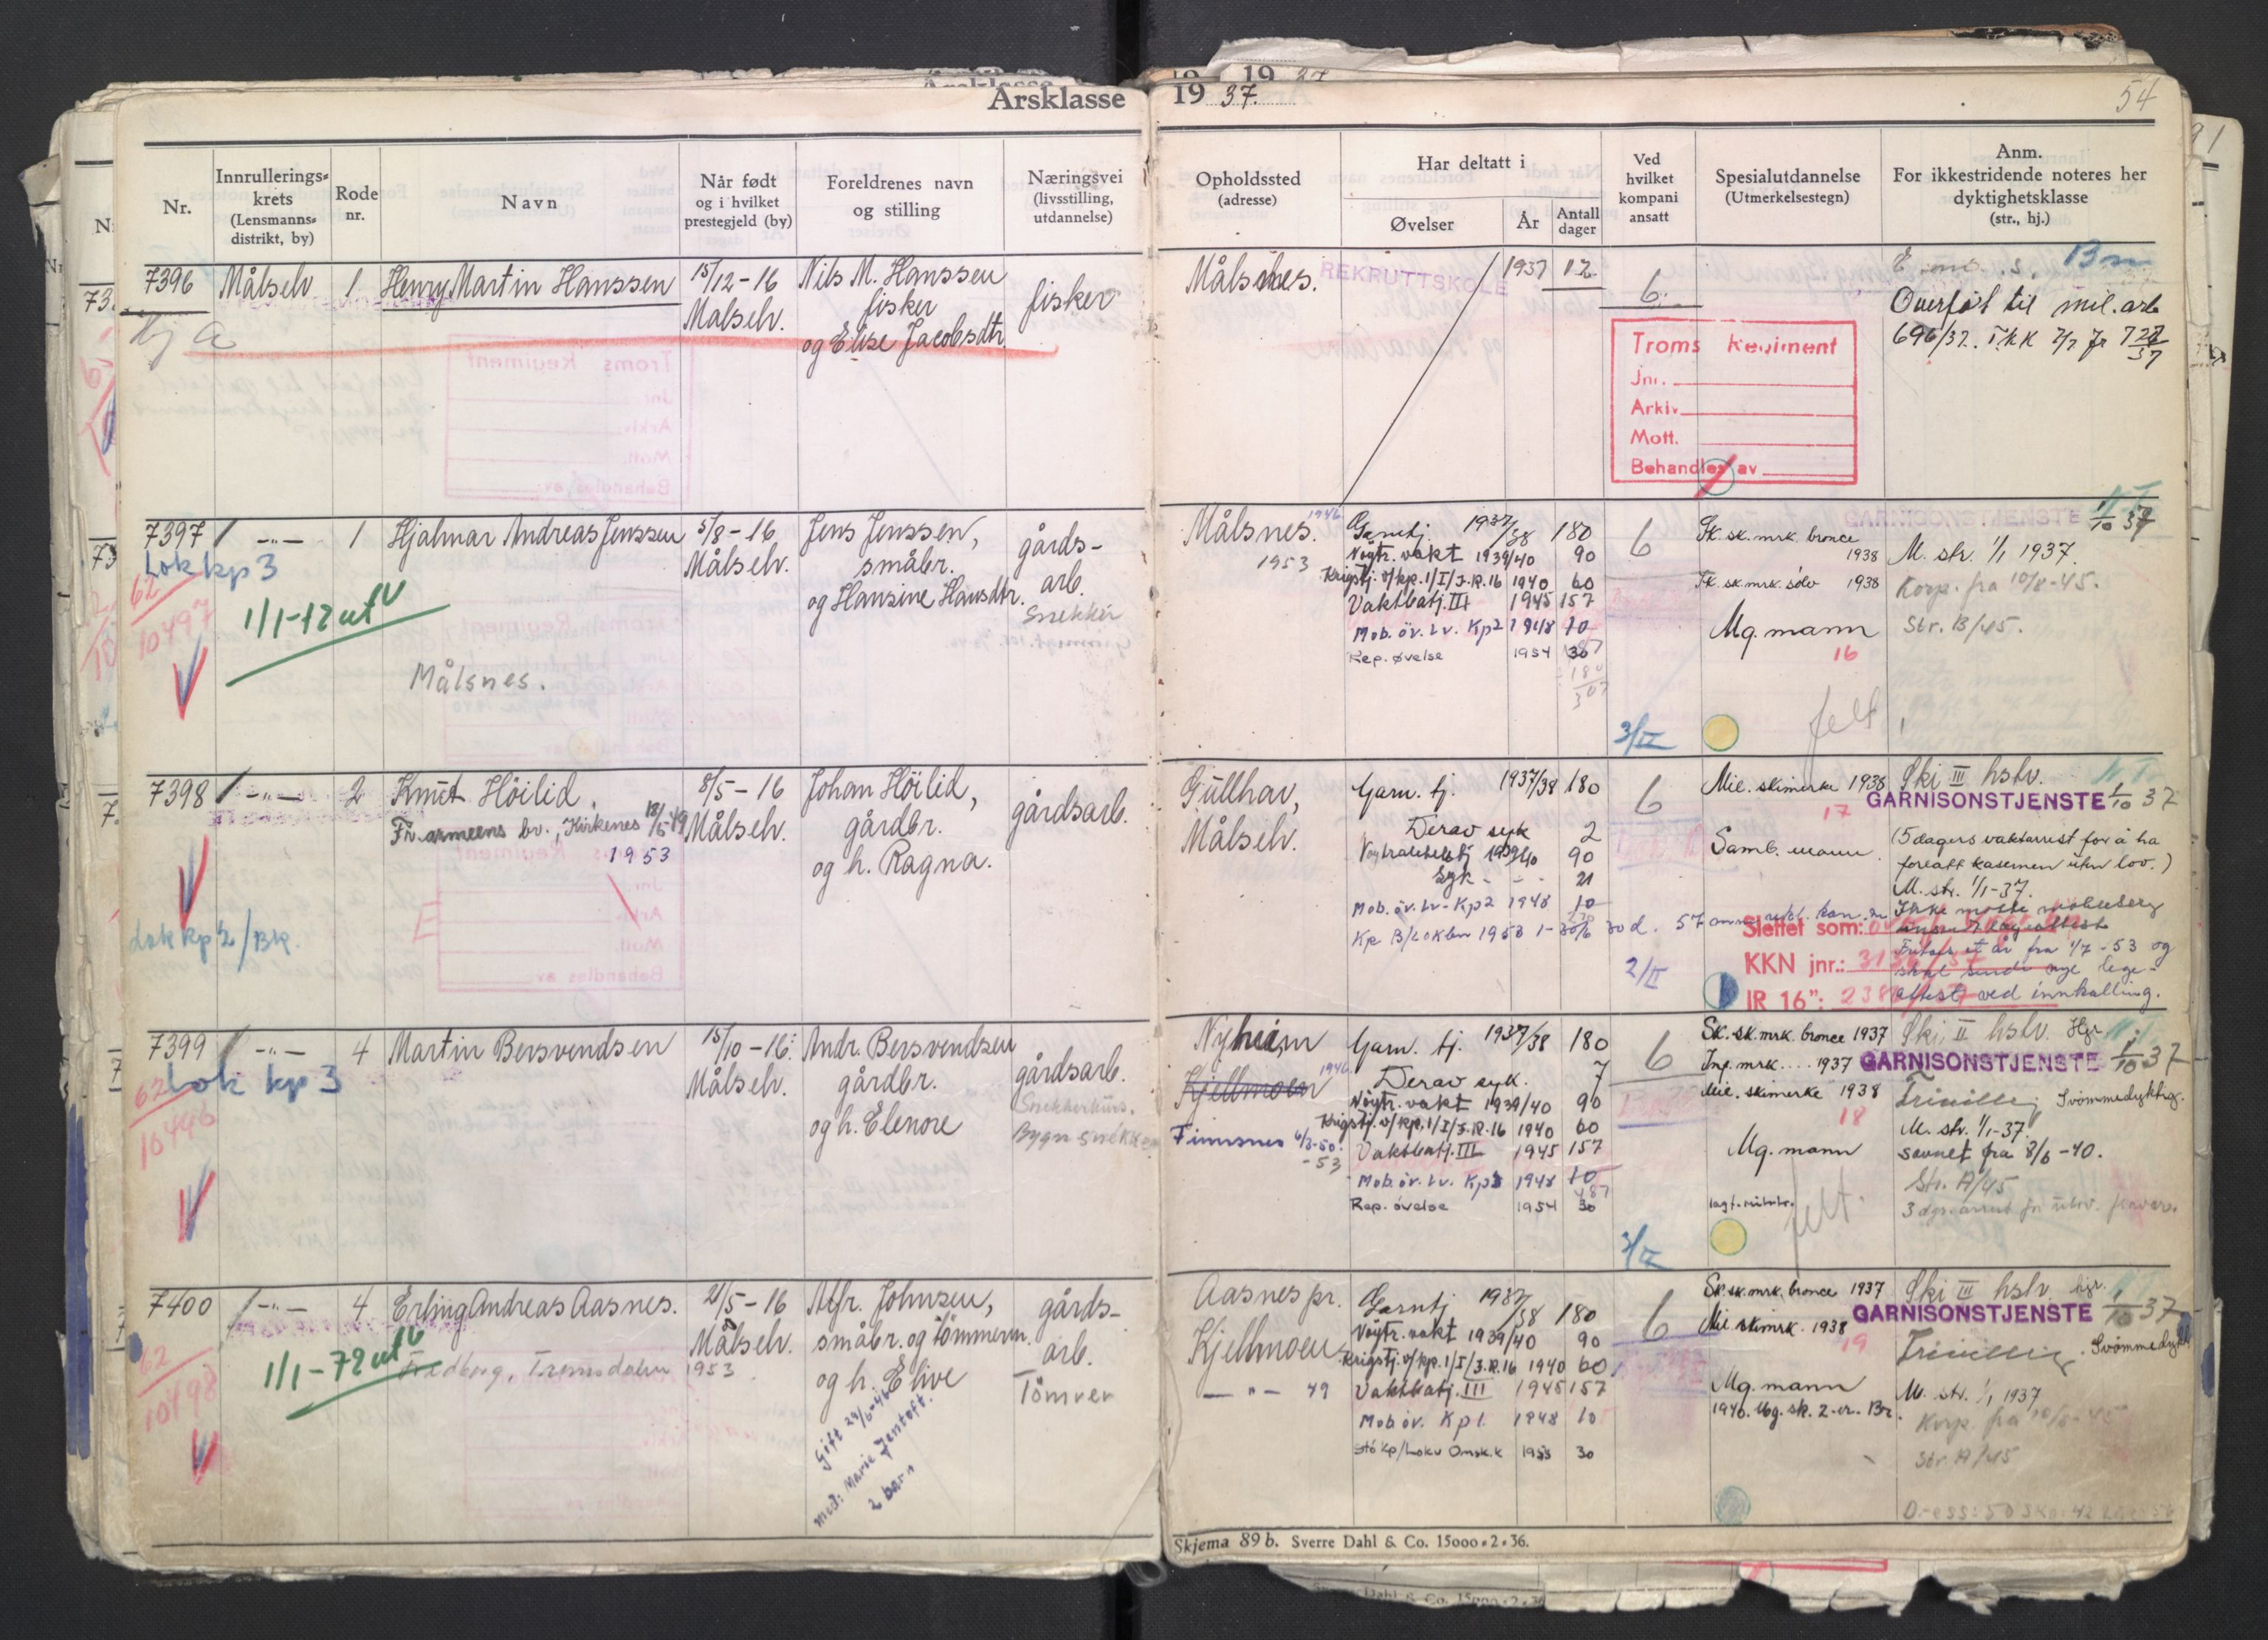 Årsklasse 1937.
54
Nr.
Innrullerings-
krets
(Lensmanns-
distrikt, by)
Rode
nr.
Navn
Når født
og i hvilket
prestegjeld (by)
Foreldrenes navn
og stilling
Næringsvei
(livsstilling,
utdannelse)
Opholdssted
(adresse)
Har deltatt i
Øvelser
År
Antall
dager
Ved
hvilket
kompani
ansatt
Spesialutdannelse
(Utmerkelsestegn)
Anm.
For ikkestridende noteres her
dyktighetsklasse
(str., hj.)
7396 Målselv 1 Henry Martin Hanssen
15/12-16
Målselv.
Nils M. Hanssen
fisker
og Elise Jacobsdtr
fisker
Målsnes.
REKRUTTSKOLE 1937 12
6
Troms Regiment
Jnr.
Arkiv
Mott.
Behandles av
Overført til mil. arb
7397 -"- 1 Hjalmar Andreas Jenssen
Lok kp 3
62
10497
1/1-72 ut
Målsnes.
5/8-16
Målselv.
Jens Jenssen,
småbr.
og Hansine Hansdtr.
gårds-
arb.
Snekker
Målsnes. 1946
1953
Garntj. 1937/38 180
Nøytr. vakt 1939/40 90
Krigstj. v/kp. 1/I/J.R.16 1940 60
Vaktbatj. III 1945 157
Mob. öv. Lv. Kp2 1948 10
Rep. øvelse 1954 30
6
3/II
Sk. sk. mrk. bronce
1938
Sk. sk. mrk. sölv 1938
Mg. mann
16
felt
GARNISONSTJENSTE 1/10 37
M. str. 1/1 1937.
Korp. fra 10/8-45.
Str. B/45.
7398 -"- 2 Knut Höilid.
Fr. armeens bv., Kirkenes
1953
Lok kp 2/Bk.
8/5-16
Målselv.
Johan Höilid,
gårdbr.
og h. Ragna.
gårdsarb.
Gullhav,
Målselv.
Garn. tj. 1937/38 180
Derav syk 2
1939/40 90
Syk - - 21
Mob. öv. Lv - Kp2 1948 10
6
2/II
Mil. skimerke 1938
17
Samb. mann.
Slettet som:
KKN jnr.:
IR 16":
Ski III hstv.
GARNISONSTJENSTE 1/10 37
(5 dagers vaktarrest for å ha
forlatt kasernen uten lov.)
M. str. 1/1-37.
Fritas et år fra 1/7-53 og
skal sende nye lege-
attest ved innkalling.
7399 -"- 4 Martin Bersvendsen
Lok kp 3
62
10496
15/10-16.
Målselv.
Andr. Bersvendsen
gårdbr.
og h. Elenore
gårdsarb.
Snekkerkurs.
Nyheim
Kjellmoen 1946
Finnsnes 6/3-50.
-53
Garn. tj. 1937/38 180
Derav syk. 7
Nöytr. vakt 1939/40 90
Krigstj. v/kp. 1/I/J.R.16 1940 60
Vaktbatj. III 1945 157
Mob. öv. Lv. Kp3 1948 10
Rep. övelse 1954 30
6
3/II
Sk. sk. mrk. bronce 1937
Inf. mrk.... 1937
Mil. skimerke 1938
18
Mg. mann
felt.
Ski II hstv. Hgr.
GARNISONSTJENSTE 1/10 37
Frivillig Svömmedyktig.
M. str. 1/1-37.
Savnet fra 8/6-40.
Str. A/45
7400 -"- 4 Erling Andreas Aasnes.
62
10498
1/1-72 ut
Fredborg, Tromsdalen 1953
21/5-16
Målselv.
Alfr. Johnsen,
småbr. og tömmerm.
og h. Elive
Gift
med: Marie Jentoft.
2 barn
gårds-
arb.
Tömrer
Aasnes pr.
Kjellmoen
-"- 49
Garntj 1937/38 180
Nöytr. vakt 1939/40 90
Krigstj. v/kp. 1/I/J.R.16 1940 60
Vaktbatj. III 1945 157
Mob öv. Kp 1. 1948 10
6
Sk. sk. mrk. bronce 1937
Mil skimrk. 1938
19
Mg. mann
Ski III hstv. hgr.
GARNISONSTJENSTE 1/10 37
Frivillig. Svömmedykt
M. str. 1/1 1937
Korp. fra 10/8-45
Str. A/45
Skjema 89 b. Sverre Dahl & Co. 15000 • 2 • 36.